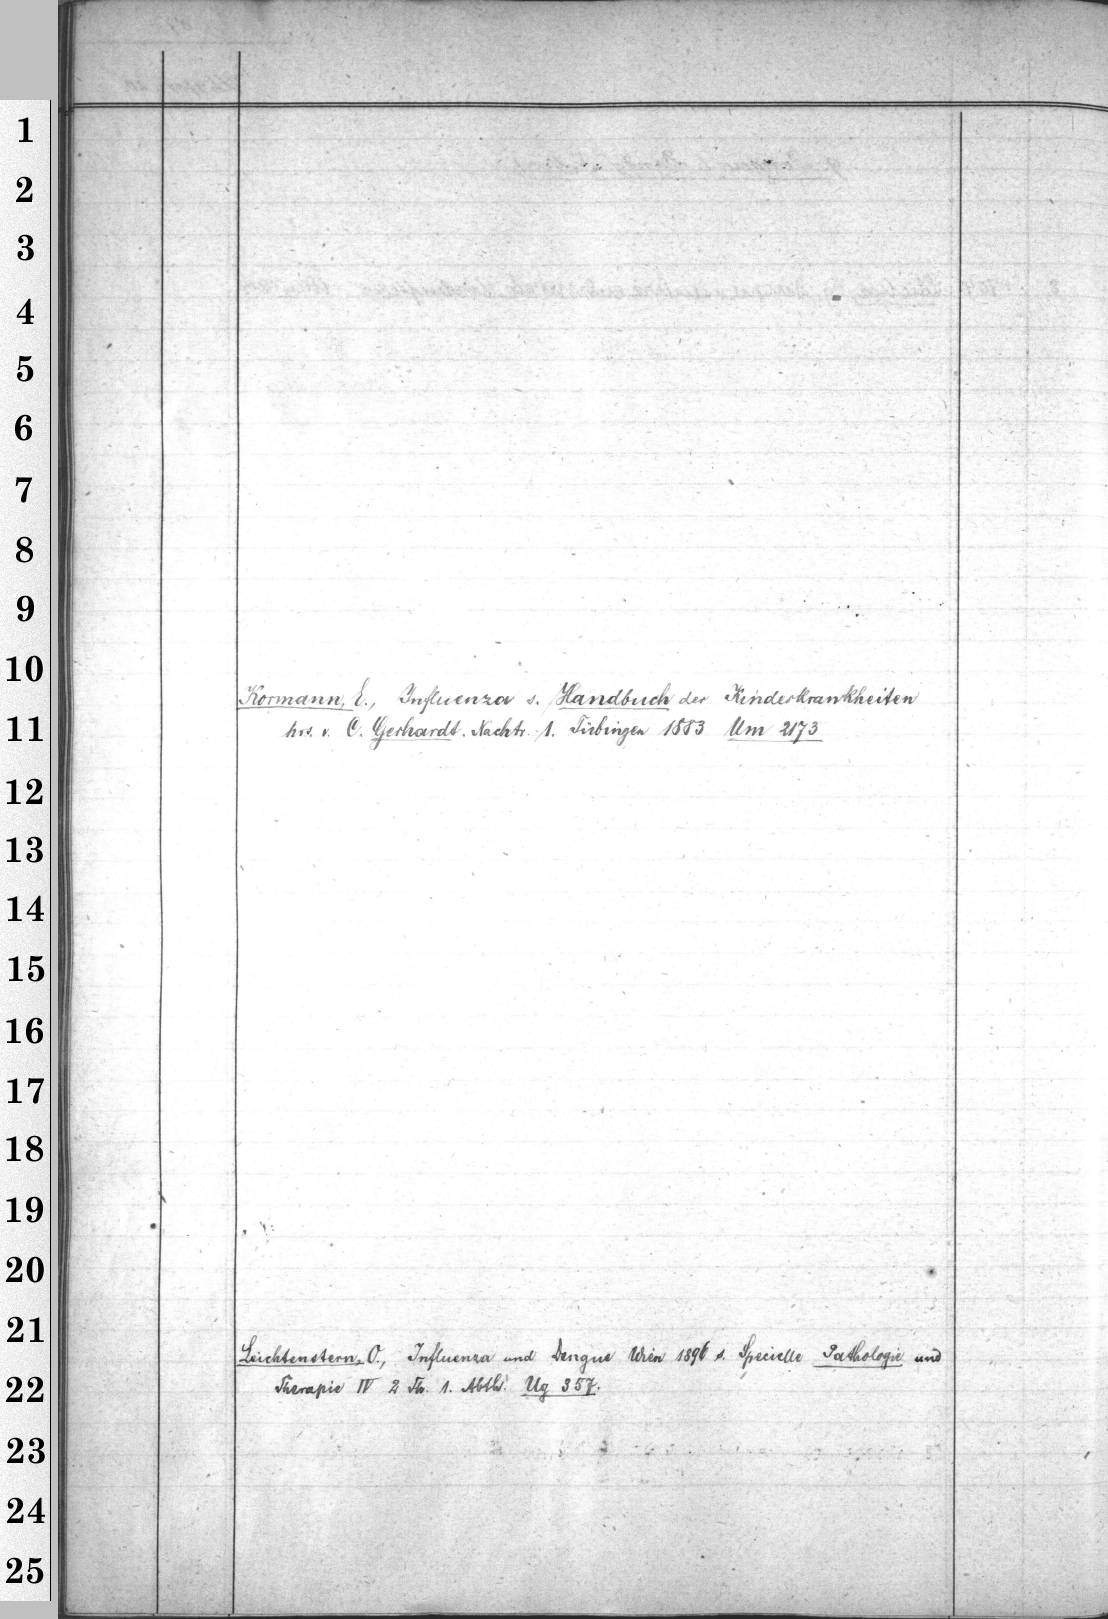 1
2
3
4
5
6
7
8
9
10
Kormann, E., Influenza s. Handbuch der Kinderkrankheiten
11
hrs. v. C. Gerhardt. Nachtr. 1. Tübingen 1883 Um 2173
12
13
14
15
16
17
18
19
20
21
Leichtenstern, O., Influenza und Dengue Wien 1896 s. Specielle Pathologie und
22
Therapie IV 2 Th. 1. Abth. Ug 357.
23
24
25